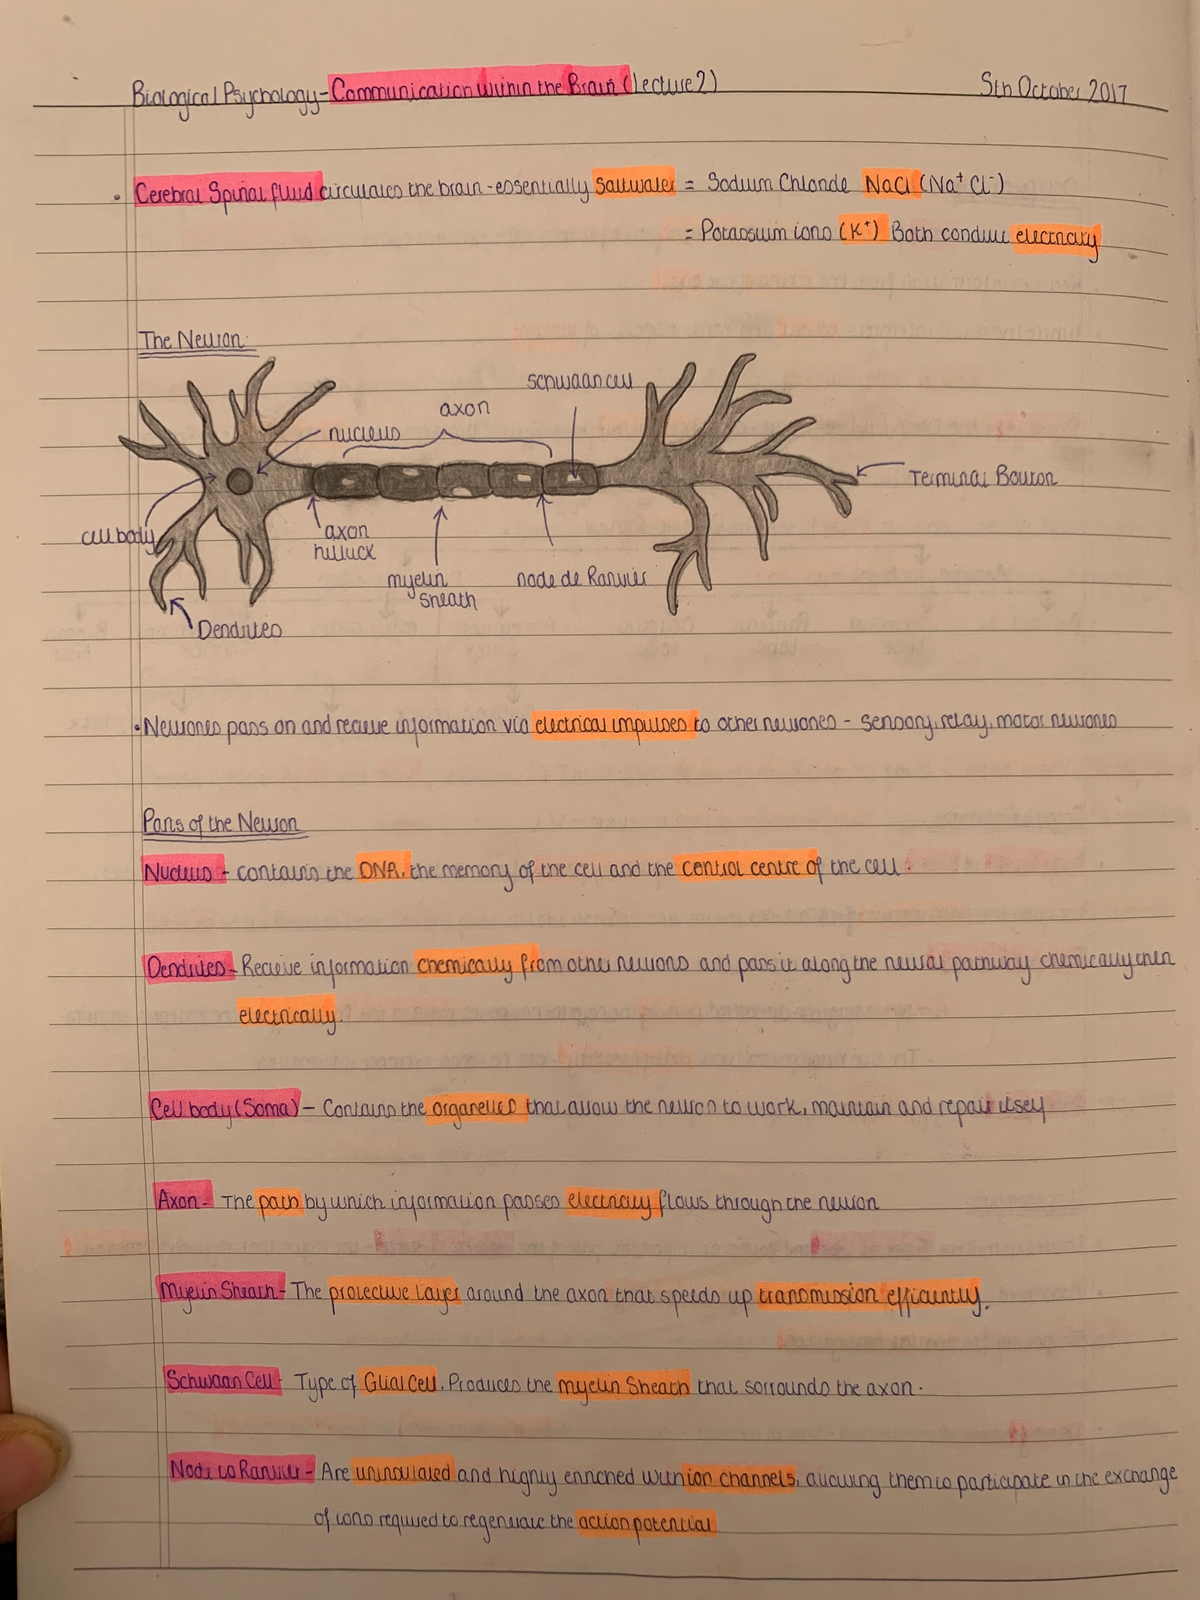 Biological Psychology - Communication within the Brain (Lecture 2) 5th October 2017
• Cerebral Spinal fluid circulates the brain - essentially Saltwater = Sodium Chloride NaCl (Na⁺ Cl⁻)
= Potassium ions (K⁺) Both conduct electricity
The Neuron
schwaan cell
axon
nucleus
Terminal Bouton
cell body
axon
hilluck
myelin
sheath
node de Ranvier
Dendrites
• Neurones pass on and recieve information via electrical impulses to other neurones - sensory, relay, motor neurones
Parts of the Neuron
Nucleus - contains the DNA, the memory of the cell and the control centre of the cell.
Dendrites - Recieve information chemically from other neurons and pass it along the neural pathway chemically then
electrically.
Cell body (Soma) - Contains the organelles that allow the neuron to work, maintain and repair itself
Axon - The path by which information passes electricity flows through the neuron
Myelin Sheath - The protective layer around the axon that speeds up transmission efficiently.
Schwaan Cell - Type of Glial Cell. Produces the myelin Sheath that sorrounds the axon.
Node to Ranvier - Are uninsulated and highly enriched with ion channels, allowing them to participate in the exchange
of ions required to regenerate the action potential